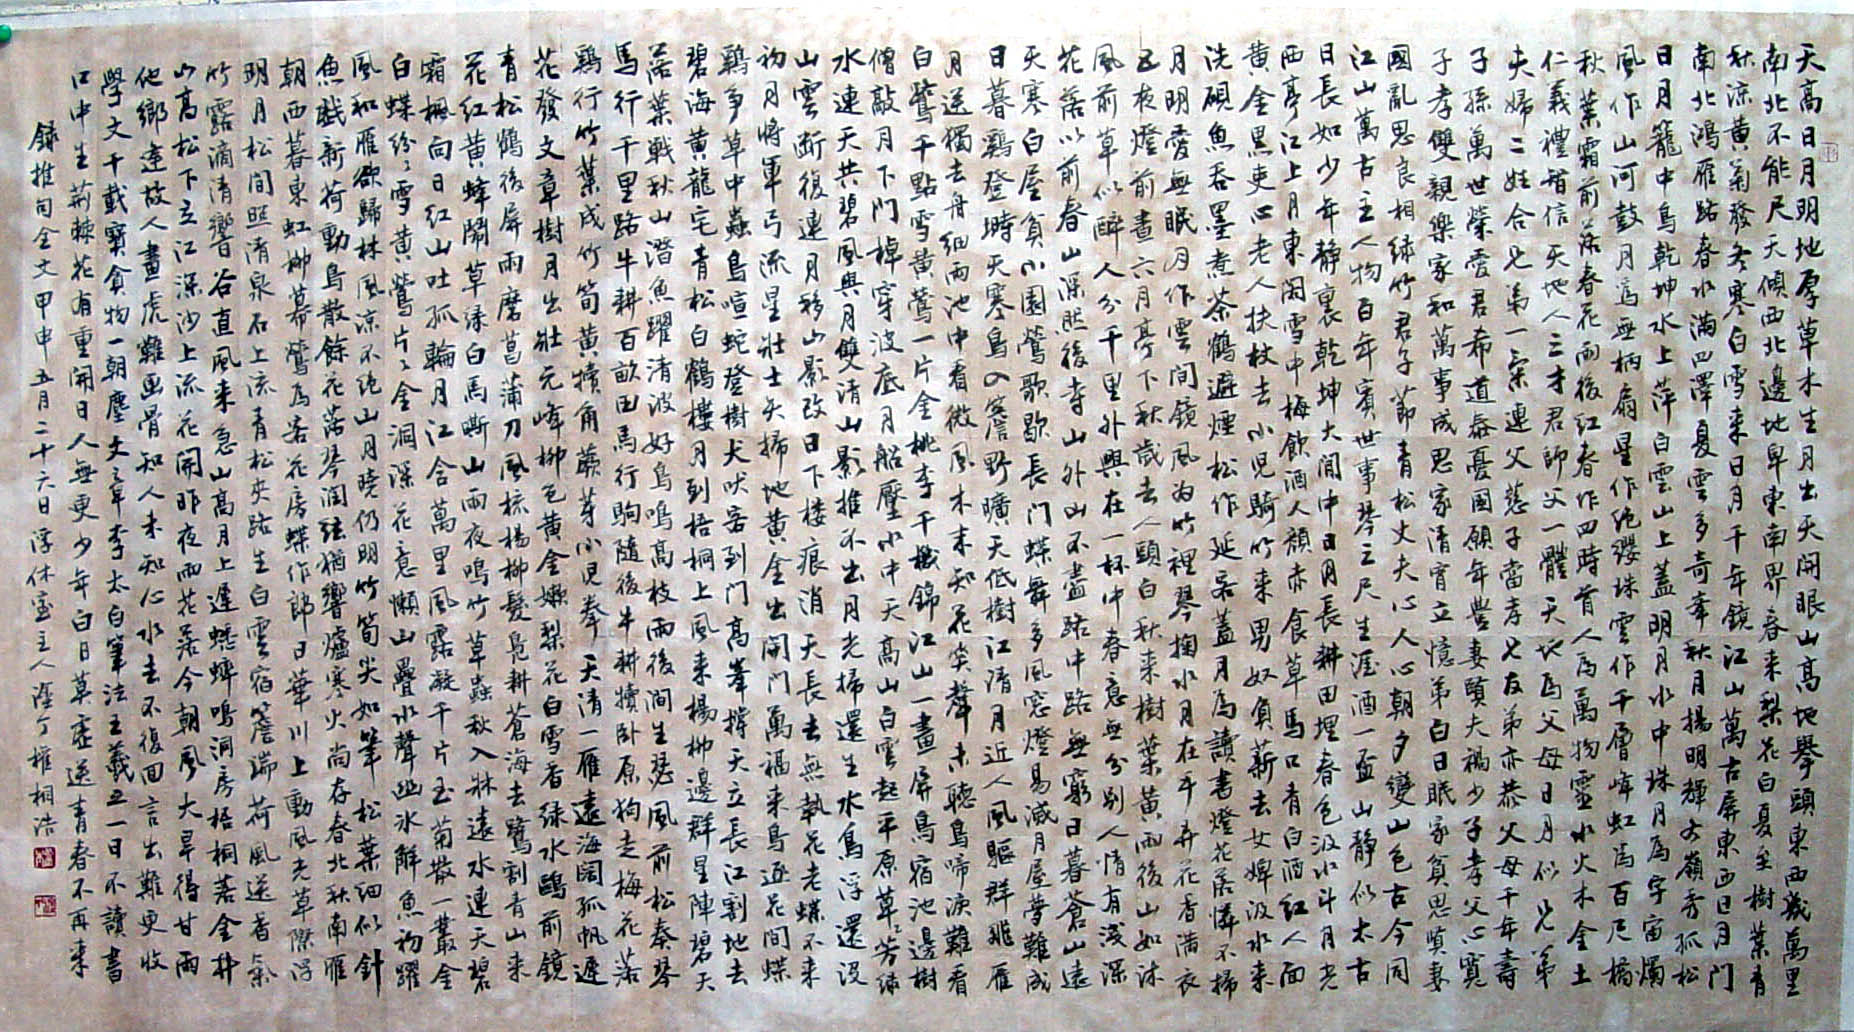 天高日月明地厚草木生月出天開眼山高地擧頭東西幾萬里
南北不能尺天傾西北邊地卑東南界春來梨花白夏至樹葉青
秋凉黃菊發冬寒白雪來日月千年鏡江山萬古屏東西日月門
南北鴻雁路春水滿四澤夏雲多奇峯秋月揚明輝冬嶺秀孤松
日月籠中鳥乾坤水上萍白雲山上蓋明月水中珠月為宇宙燭
風作山河鼓月爲無柄扇星作絶纓珠雲作千層峰虹爲百尺橋
秋葉霜前落春花雨後紅春作四時首人爲萬物靈水火木金土
仁義禮智信天地人三才君師父一體天地爲父母日月似兄弟
夫婦二姓合兄弟一氣連父慈子當孝兄友弟亦恭父母千年壽
子孫萬世榮愛君希道泰憂國願年豊妻賢夫禍少子孝父心寬
子孝雙親樂家和萬事成思家清宵立憶弟白日眠家貧思賢妻
國亂思良相綠竹君子節青松丈夫心人心朝夕變山色古今同
江山萬古主人物百年賓世事琴三尺生涯酒一盃山静似太古
日長如少年静裏乾坤大閒中日月長耕田埋春色汲水斗月光
西亭江上月東閣雪中梅飲酒人顔赤食草馬口青白酒紅人面
黃金黑吏心老人扶杖去小兒騎竹來男奴負薪去女婢汲水來
洗硯魚吞墨煮茶鶴避煙松作延客蓋月爲讀書燈花落憐不掃
月明愛無眠月作雲間鏡風为竹裡琴掬水月在手弄花香滿衣
五夜燈前晝六月亭下秋歲去人頭白秋來樹葉黃雨後山如沐
風前草似醉人分千里外興在一杯中春意無分別人情有淺深
花落以前春山深然後寺山外山不盡路中路無窮日暮蒼山遠
天寒白屋貧小園鶯歌歇長门蝶舞多風窓燈易滅月屋夢難成
日暮鷄登塒天寒鳥入簷野曠天低樹江清月近人風驅群飛雁
月送獨去舟細雨池中看微風木末知花笑聲未聽鳥啼淚難看
白鷺千點雪黃鶯一片金桃李千機錦江山一畫屏鳥宿池邊樹
僧敲月下门棹穿波底月船壓水中天高山白雲起平原草芳綠
水連天共碧風與月雙清山影推不出月光掃還生水鳥浮還沒
山雲断復連月移山影改日下楼痕消天長去無執花老蝶不來
初月將軍弓流星壯士矢掃地黃金出開門萬福來鳥逐花間蝶
鷄爭草中蟲鳥喧蛇登樹犬吠客到门高峯撐天立長江割地去
碧海黃龍宅青松白鶴樓月到梧桐上風來楊柳邊群星陣碧天
落葉戰秋山潛魚躍清波好鳥鳴高枝雨後澗生瑟風前松奏琴
馬行千里路牛耕百畝田馬行駒隨後牛耕犢卧原狗走梅花落
鷄行竹葉成竹筍黃犢角蕨芽小兒拳天清一雁遠海闊孤帆遲
花發文章樹月出壯元峰柳色黃金嫩梨花白雪香綠水鷗前鏡
青松鶴後屏雨磨菖蒲刀風梳楊柳髮鳧耕蒼海去鷺割青山來
花紅黃蜂鬧草綠白馬嘶山雨夜鳴竹草蟲秋入牀遠水連天碧
霜楓向日紅山吐孤輪月江含萬里風露凝千片玉菊散一叢金
白蝶紛々雪黃鶯片々金洞深花意懶山疊水聲幽氷解魚初躍
風和雁欲歸林風凉不絶山月曉仍明竹筍尖如筆松葉細似針
魚戲新荷動鳥散餘花落琴潤絃猶響爐寒火尚存春北秋南雁
朝西暮東虹柳幕鶯爲客花房蝶作郎日華川上動風光草際浮
明月松間照清泉石上流青松夾路生白雲宿簷端荷風送香氣
竹露滴清響谷直風來急山高月上遲蟋蟀鳴洞房梧桐落金井
山高松下立江深沙上流花開昨夜雨花落今朝風大旱得甘雨
他鄉逢故人畫虎難画骨知人未知心水去不復回言出難更收
學文千載寶貪物一朝塵文章李太白筆法王羲之一日不讀書
口中生荊棘花有重開日人無更少年白日莫虛送青春不再來
錄推句全文甲申五月二十六日浮休室主人權桐浩